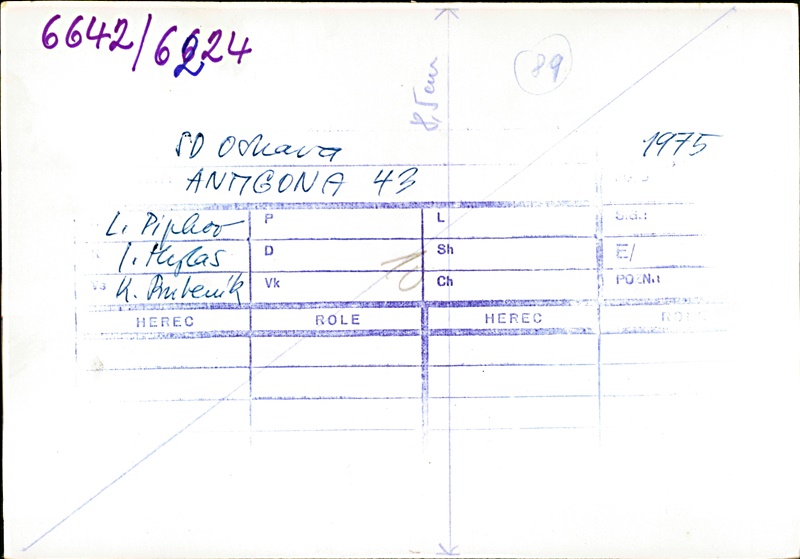 6642/6224
89
8,5 cm
SD Ostrava 1975
ANTIGONA 43
P L S.G.:
D Sh E/
Vs K. Vk Ch POZN.:
HEREC ROLE HEREC ROLE
10